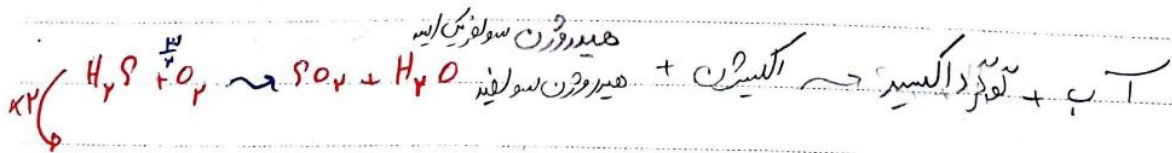 هیدروژن سولفوریک اسید
H₂S + ۳/۲ O₂ → SO₂ + H₂O هیدروژن سولفید + اکسیژن → گوگرد دی‌اکسید + آب
×۲